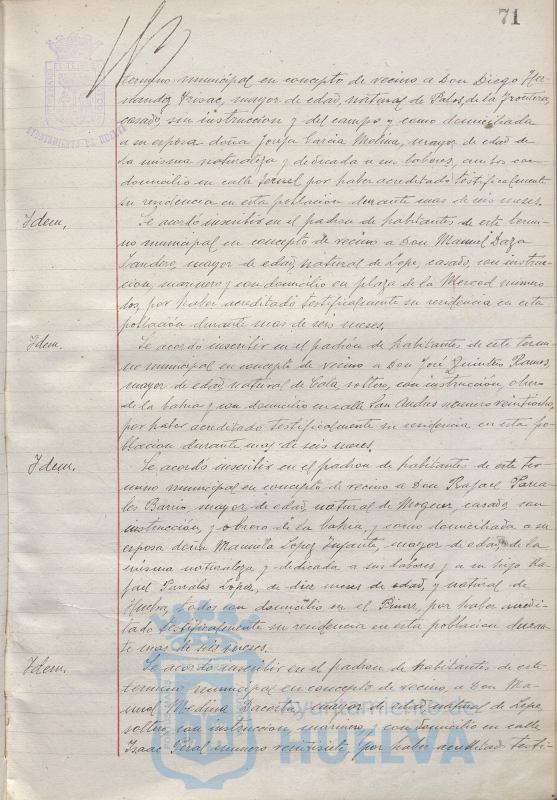 71
AYUNTAMIENTO DE HUELVA
termino municipal en concepto de vecino a Don Diego Her-
nandez mayor de edad, natural de Palos de la Frontera
casado, sin instruccion y del campo y como domiciliada
a su esposa doña Josefa Garcia Molina, mayor de edad de
la misma naturaleza y dedicada a sus labores, ambos con
domicilio en calle por haber acreditado testificalmente
su residencia en esta poblacion durante mas de seis meses.
Idem, Se acordó inscribir en el padron de habitantes de este termi-
no municipal en concepto de vecino a Don Manuel Daza
Landero, mayor de edad, natural de Lepe, casado, con instruc-
cion, marinero y con domicilio en plaza de la Merced numero
dos, por haber acreditado testificalmente su residencia en esta
población durante mas de seis meses.
Idem. Se acordó inscribir en el padrón de habitantes de este termi-
no municipal en concepto de vecino a Don José Quintero Ramos,
mayor de edad natural de soltero, con instrucción, obrero
de la bahia y con domicilio en calle San Andres numero veintiocho,
por haber acreditado testificalmente su residencia en esta po-
blacion durante mas de seis meses.
Idem. Se acordó inscribir en el padron de habitantes de este ter-
mino municipal en concepto de vecino a Don Rafael Parra-
les Barrio, mayor de edad, natural de Moguer, casado, con
instrucción, y obrero de la bahia, y como domiciliada a su
esposa doña Manuela Lopez Infante, mayor de edad, de la
misma naturaleza y dedicada a sus labores y a su hijo Ra-
fael Parrales Lopez, de diez meses de edad, y natural de
Huelva, todos con domicilio en el Pinar, por haber acredi-
tado testificalmente su residencia en esta poblacion duran-
te mas de seis meses.
Idem. Se acordó inscribir en el padron de habitantes de este
término municipal en concepto de vecino, a Don Ma-
nuel Medina Bacerta, mayor de edad, natural de Lepe,
soltero, con instruccion, marinero, con domicilio en calle
Isaac Peral numero veintisiete, por haber acreditado testi-
Ayuntamiento de
HUELVA